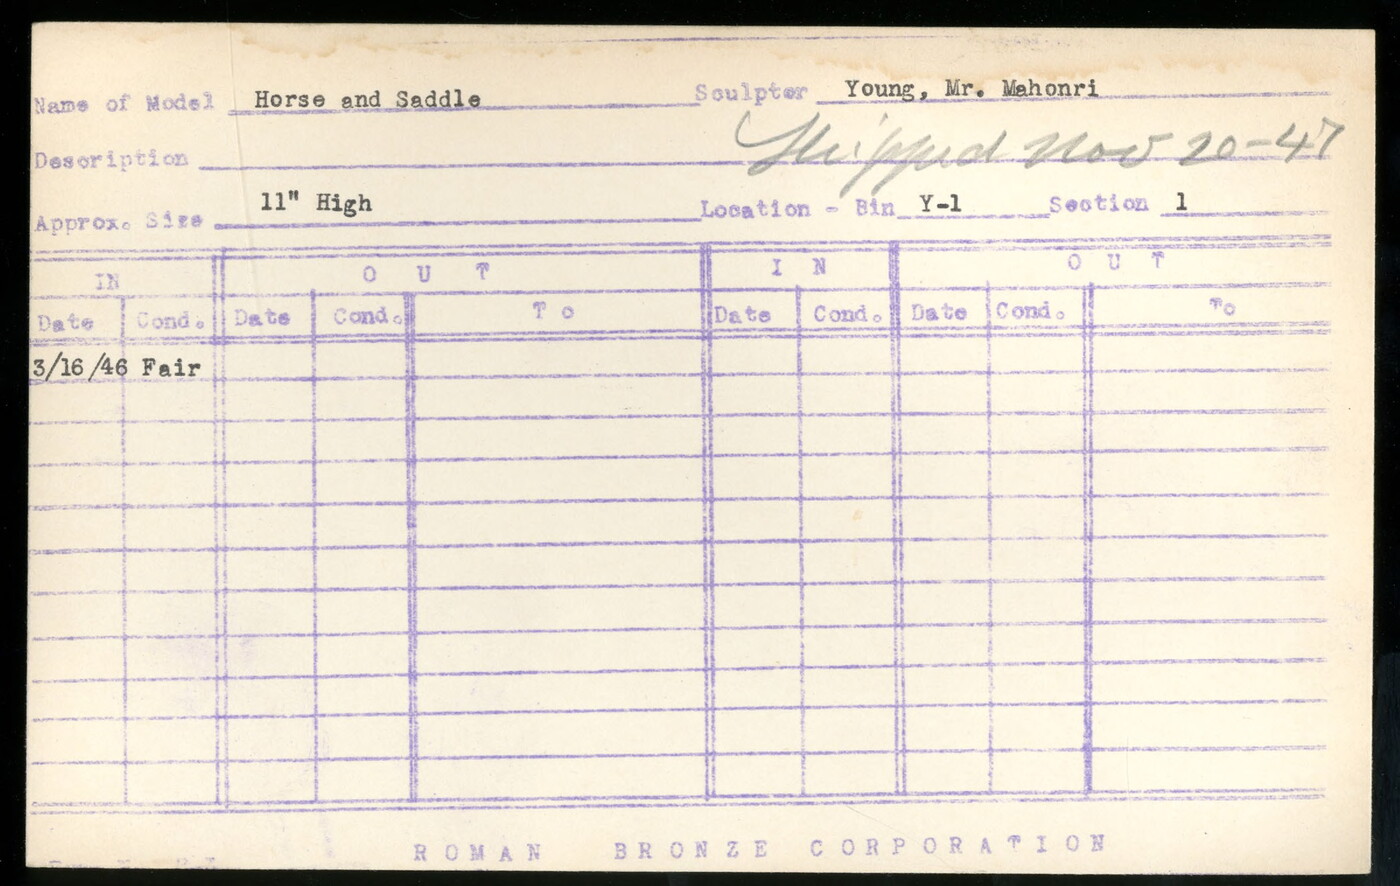 Name of Model Horse and Saddle Sculptor Young, Mr. Mahonri
Description Shipped Nov 20-47
Approx. Size 11" High Location - Bin Y-1 Section 1
IN O U T I N O U T
Date Cond. Date Cond. To Date Cond. Date Cond. To
3/16/46 Fair
ROMAN BRONZE CORPORATION